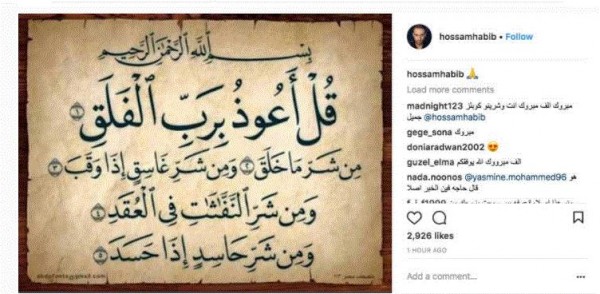 بِسْمِ اللَّهِ الرَّحْمَٰنِ الرَّحِيمِ
قُلْ أَعُوذُ بِرَبِّ الْفَلَقِ ١
مِن شَرِّ مَا خَلَقَ ٢ وَمِن شَرِّ غَاسِقٍ إِذَا وَقَبَ ٣
وَمِن شَرِّ النَّفَّاثَاتِ فِي الْعُقَدِ ٤
وَمِن شَرِّ حَاسِدٍ إِذَا حَسَدَ ٥
hossamhabib • Follow
hossamhabib 🙏
Load more comments
madnight123 مبروك الف مبروك انت وشرينو كوبلز
جميل @hossamhabib
gege_sona مبروك
doniaradwan2002 😍
guzel_elma الف مبرووك الله يوفقكم
nada.noonos @yasmine.mohammed96 هو
قال حاجه فين الخبر اصلا
2,926 likes
1 HOUR AGO
Add a comment...